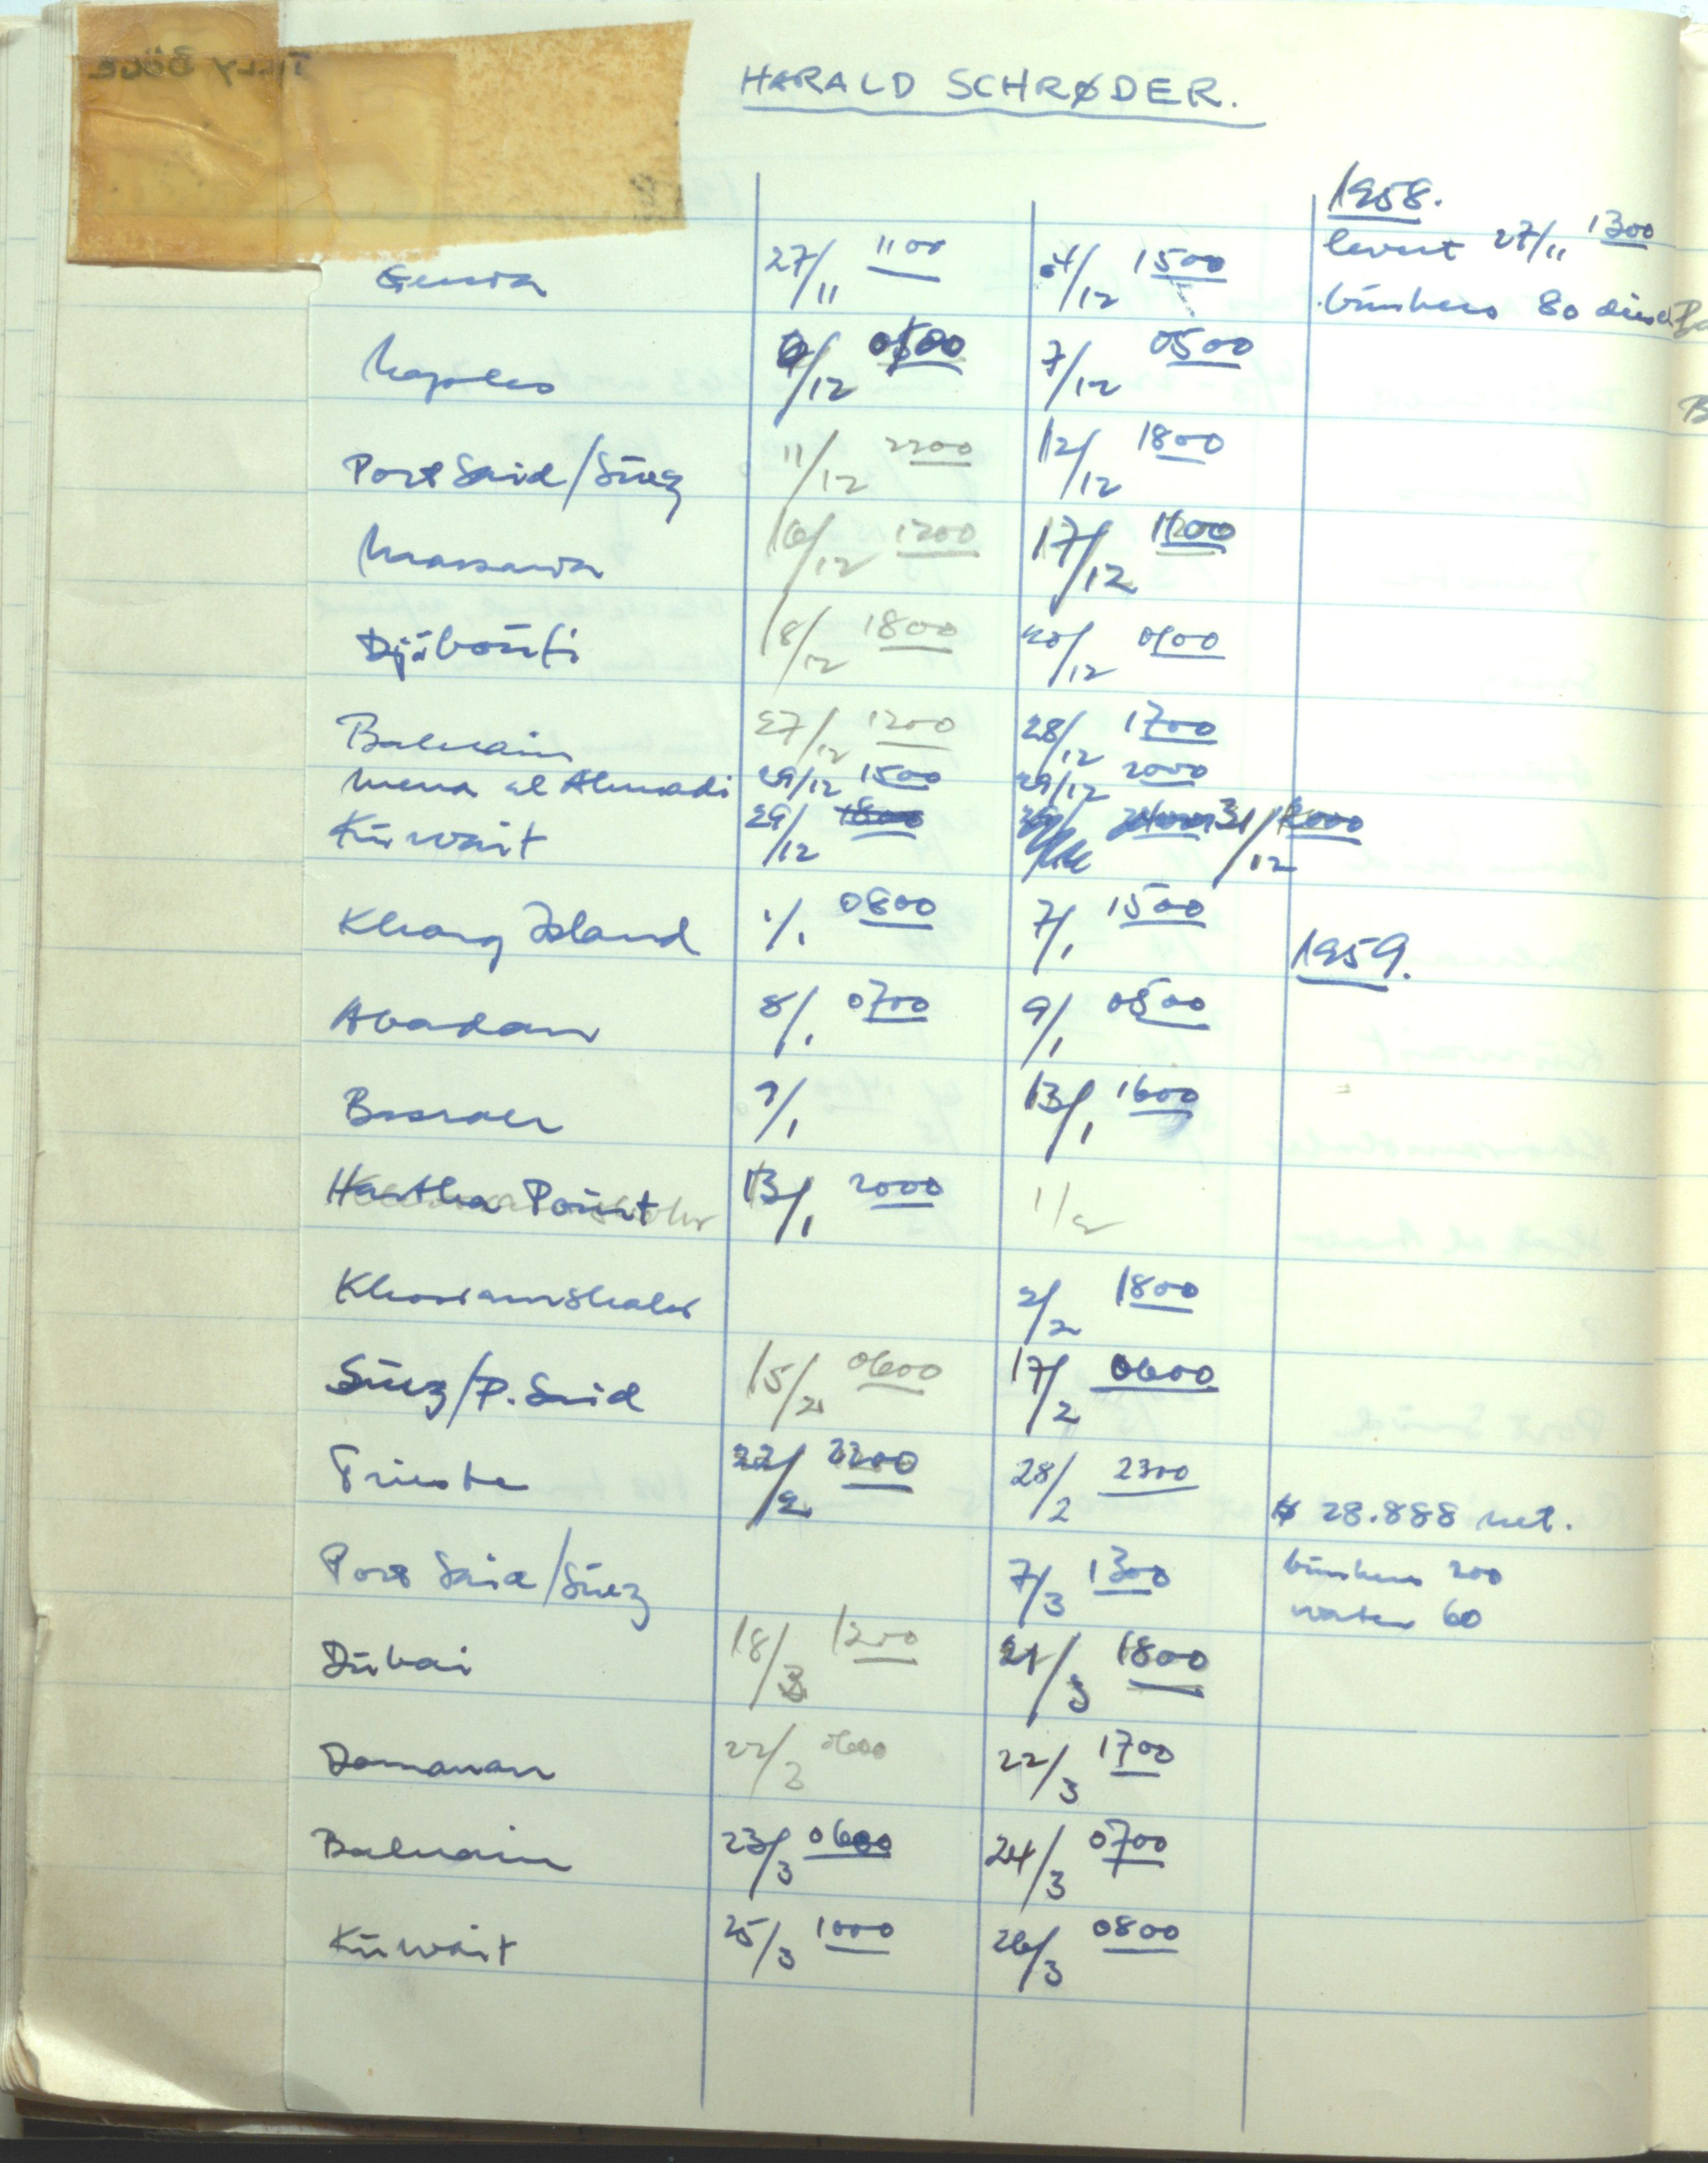 HARALD SCHRØDER.
1958.
Genua 27/11 1100 4/12 1500 levert 27/11 1300
bunkers 80 diesel
Naples 6/12 0500 7/12 0500
Port Said/Suez 11/12 2200 12/12 1800
Massawa 16/12 1200 17/12 1200
Djibouti 18/12 1800 20/12 0900
Bahrain 27/12 1200 28/12 1700
Mena al Ahmadi 29/12 1500 29/12 2000
Kuwait 29/12 1800 31/12 2000
Kharg Island 1/1 0800 7/1 1500
1959.
Abadan 8/1 0700 9/1 0500
Basrah 9/1 13/1 1600
Hartha Point 13/1 2000 1/2
Khorramshahr 2/2 1800
Suez/P. Said 15/2 0600 17/2 0600
Trieste 22/2 2200 28/2 2300
$ 28.888 net.
Port Said/Suez 7/3 1300 bunkers 200
water 60
Dubai 18/3 1200 21/3 1800
Damman 22/3 0600 22/3 1700
Bahrain 23/3 0600 24/3 0700
Kuwait 25/3 1000 26/3 0800